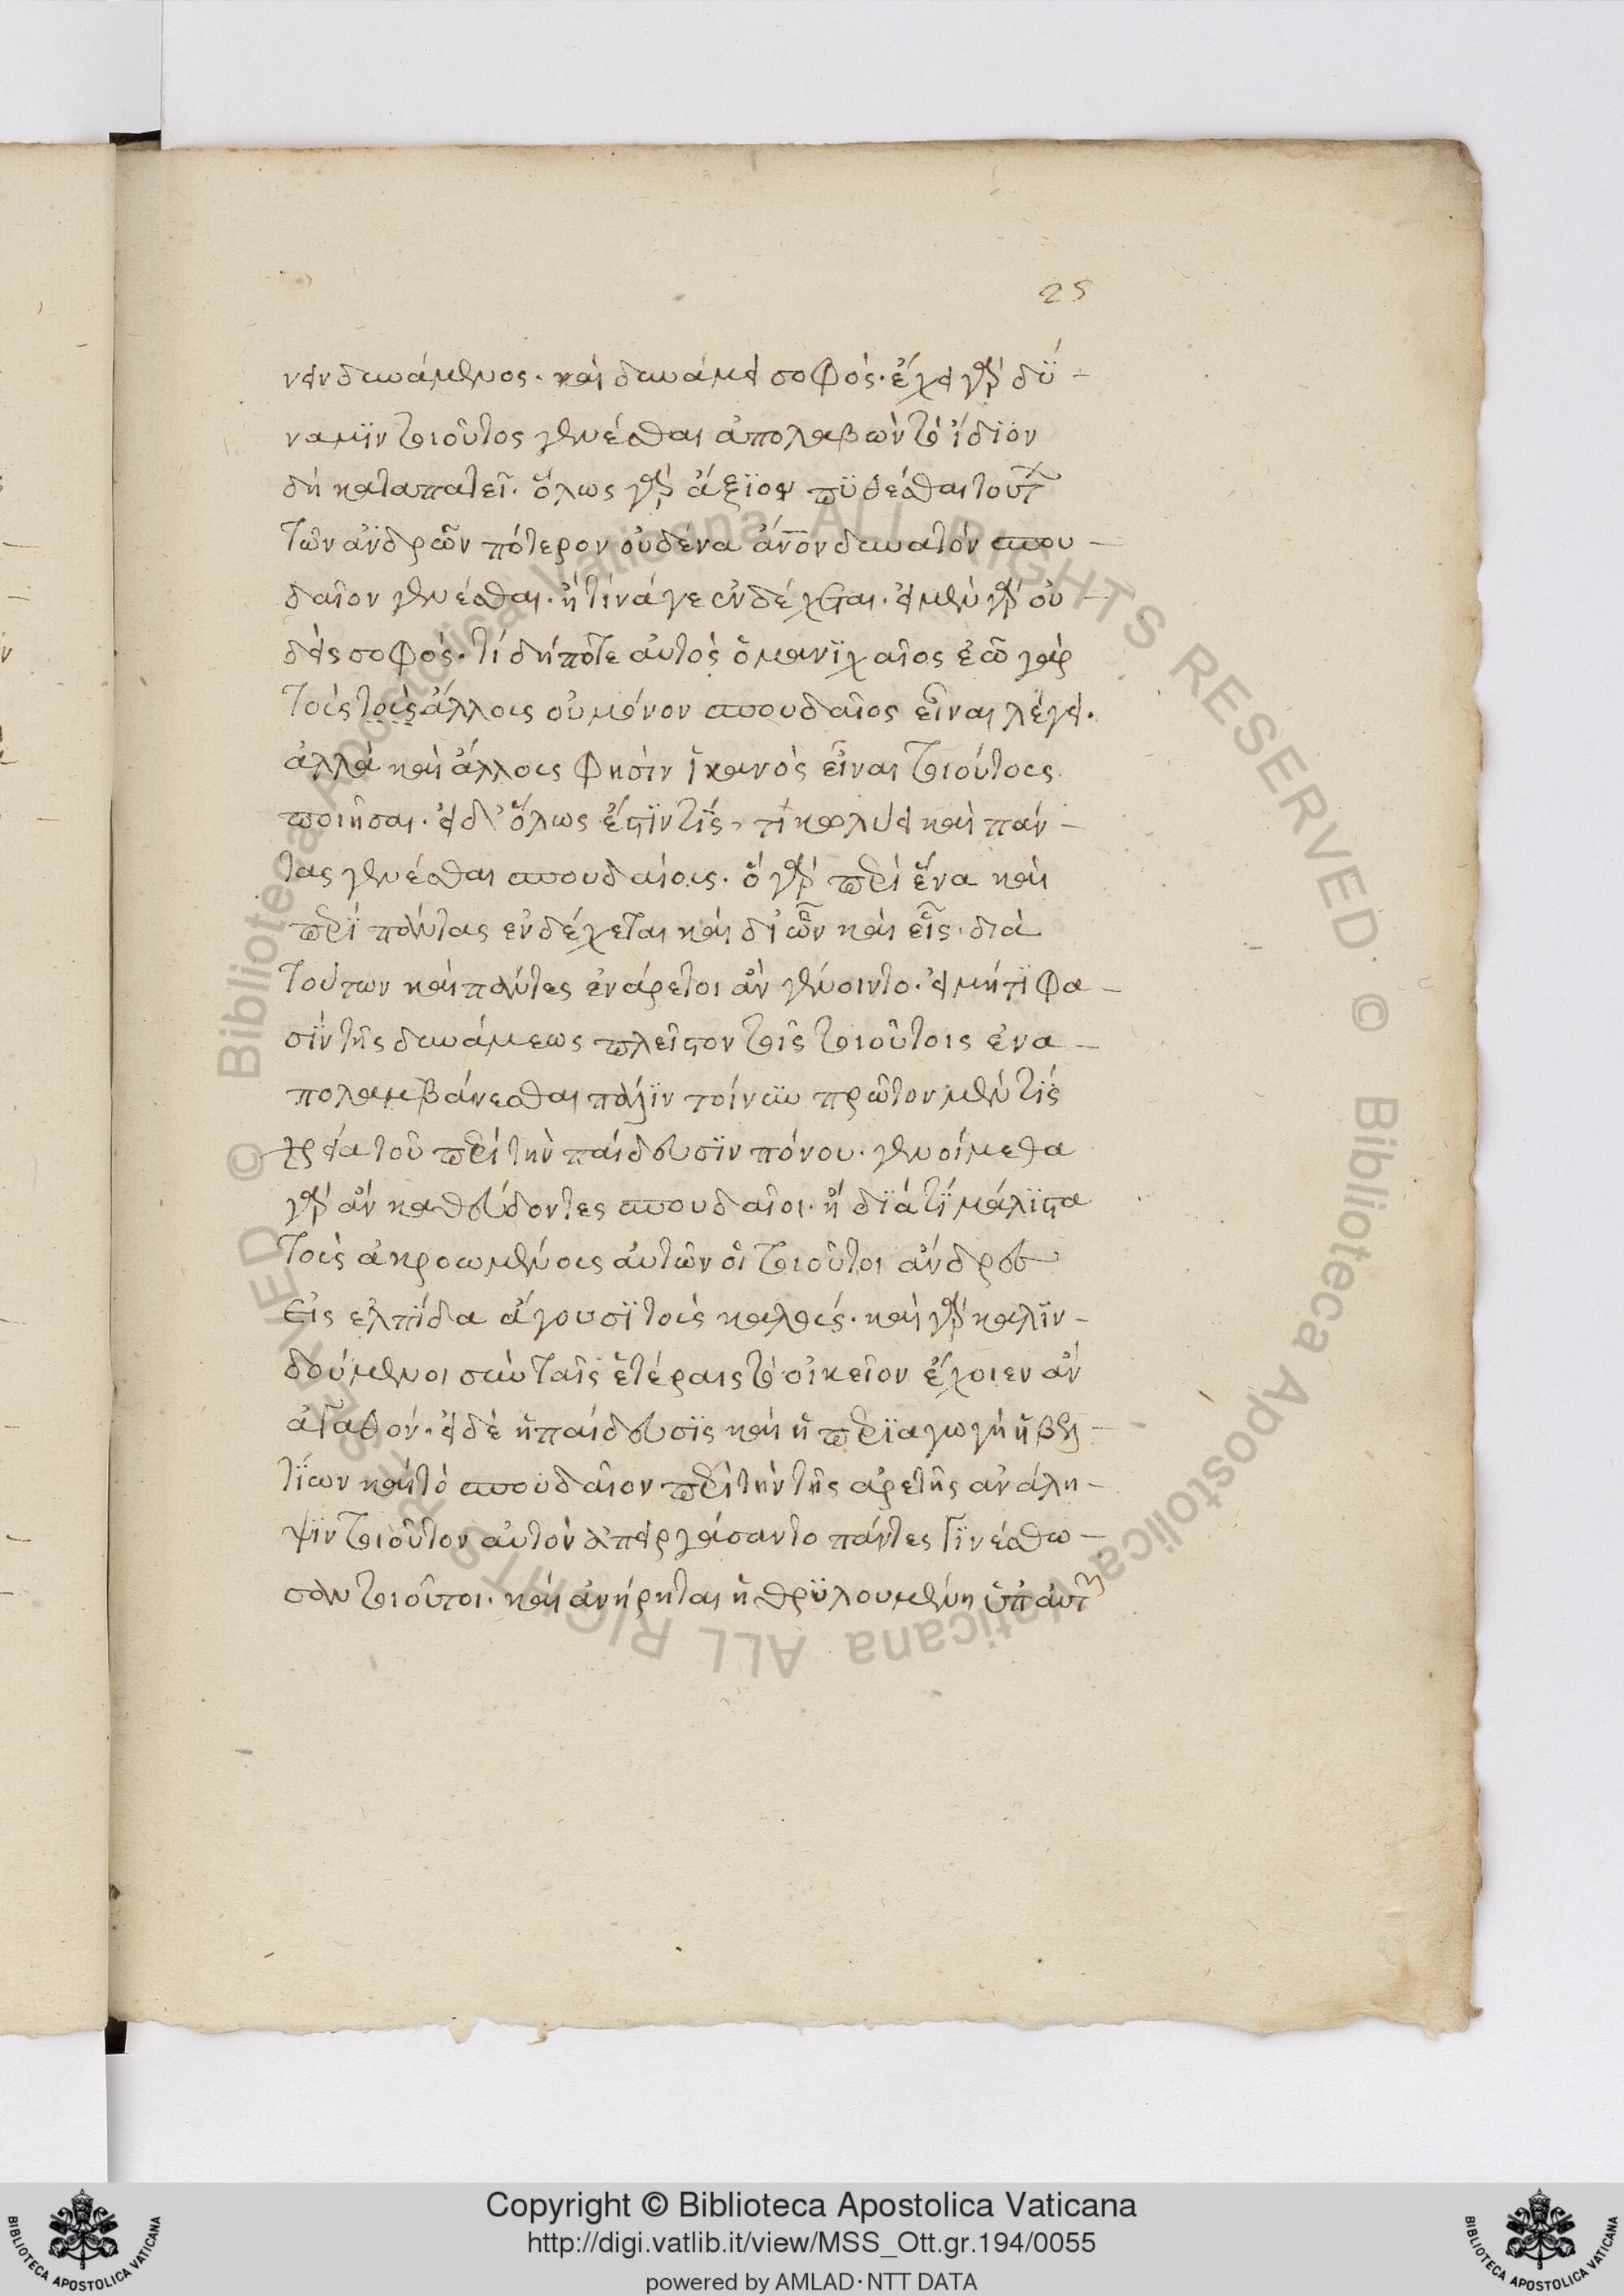 25
νειν δυνάμενος· καὶ δυνάμει σοφός· ἔχει γὰρ δύ-
ναμϊν τοιοῦτος γενέσθαι ἀπολαβὼν τὸ ἴδϊον
δὴ καταπατεῖ· ὅλως γὰρ ἄξϊον πϋθέσθαι τουτ
τῶν ἀνδρῶν πότερον οὐδένα ἄνον δυνατὸν σπου-
δαῖον γενέσθαι· ἢ τίνά γε ἐνδέχεται· εἰ μὲν γὰρ οὐ
δεὶς σοφός· τί δήποτε αὐτὸς ὁ μανϊχαῖος ἐῶ γὰρ
τοὺς τοὺς ἄλλους οὐ μόνον σπουδαῖος εἶναι λέγει·
ἀλλὰ καὶ ἄλλους φησὶν ἱκανὸς εἶναι τοιούτους
ποιῆσαι· εἰ δ' ὅλως ἔστϊν τίς, τί κωλύει καὶ πάν-
τας γενέσθαι σπουδαίους· ὃ γὰρ περὶ ἕνα καὶ
περὶ πάντας ἐνδέχεται καὶ δι' ὧν καὶ εἷς· διὰ
τούτων καὶ πάντες ἐνάρετοι ἂν γένοιντο· εἰ μή τϊ φα-
σϊν τῆς δυνάμεως πλεῖστον τοῖς τοιοῦτοις ἐνα-
πολαμβάνεσθαι πάλϊν τοίνυν πρῶτον μὲν τίς
χρεία τοῦ περὶ τὴν παίδευσϊν πόνου· γενοίμεθα
γὰρ ἂν καθεύδοντες σπουδαῖοι· ἢ δϊατί μάλϊστα
τοὺς ἀκροωμένους αὐτῶν οἱ τοιοῦτοι ἄνδρες
εἰς ἐλπίδα ἄγουσϊ τοὺς καλούς· καὶ γὰρ καλϊν-
δούμενοι σὺν ταῖς ἑτέραις τὸ οἰκεῖον ἔχοιεν ἂν
ἀγαθόν· εἰ δὲ ἡ παίδευσϊς καὶ ἡ περϊαγωγὴ ἡ βελ-
τίων καὶ τὸ σπουδαῖον περὶ τὴν τῆς ἀρετῆς ἀνάλη-
ψϊν τοιοῦτον αὐτὸν ἀπειργάσαντο πάντες γϊνέσθω-
σαν τοιοῦτοι· καὶ ἀνήρηται ἡ θρϋλουμένη ὑπ' αὐτῶν
Copyright © Biblioteca Apostolica Vaticana
http://digi.vatlib.it/view/MSS_Ott.gr.194/0055
powered by AMLAD·NTT DATA